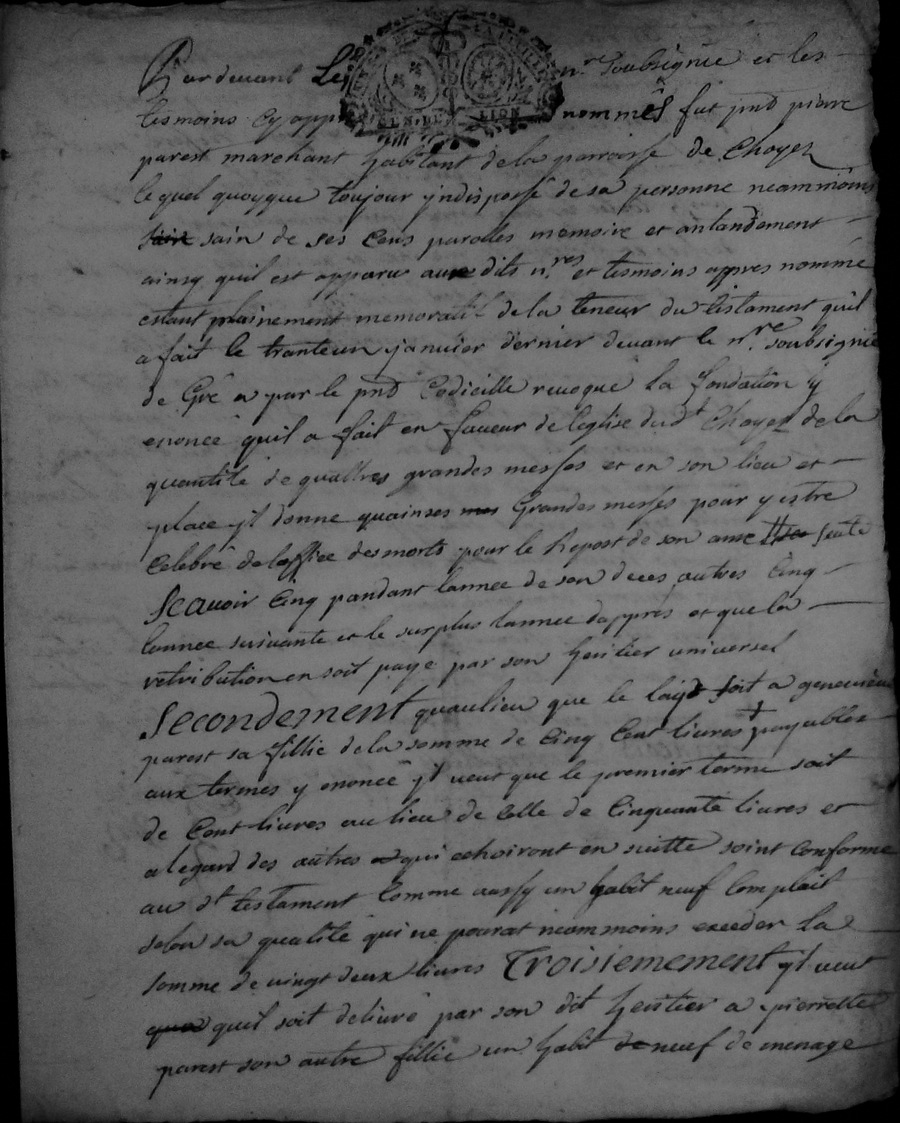 Pardevant Le n.re Soubsignée et les
tesmoins cy app nommés fut pnt pierre
parest marchant habitant de la parroisse de Choyer
lequel quoyque toujour yndisposé de sa personne neammoins
sain de ses cens parolles memoire et antandement
ainsy quil est apparu aux dits n.res et tesmoins appres nommé
estant plainement memoratif de la teneur du testament quil
a fait le tranteun janvier dernier devant le n.re soubsigné
de Gré a par le pnt Codicille revoque la fondation y
enoncé quil a fait en faveur de leglise dud.t Choyer de la
quantité de quattres grandes messes et en son lieu et
place yl donne quainses Grandes messes pour y estre
Celebré de loffice des morts pour le Repost de son ame
Scavoir Cinq pandant lannee de son deces autres Cinq
lannee suivante et le surplus lannee dappres et que la
retribution en soit paye par son heritier universel
Secondement quaulieu que le laigt soit a genevieve
parest sa fillie de la somme de Cinq Cent livres payables
aux termes y enoncé yl veut que le premier terme soit
de Cent livres au lieu de celle de Cinquante livres et
a legard des autres qui echoiront en suitte soint conforme
au d.t testament Comme aussy un habit neuf Complait
selon sa qualité qui ne pourat neammoins exceder la
somme de vingt deux livres Troisiemement yl veut
quil soit delivré par son dit heritier a pierrette
parest son autre fillie un habit neuf de menage